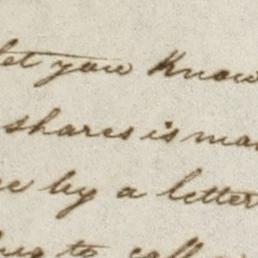 let you know
shares is ma
by a letter
to